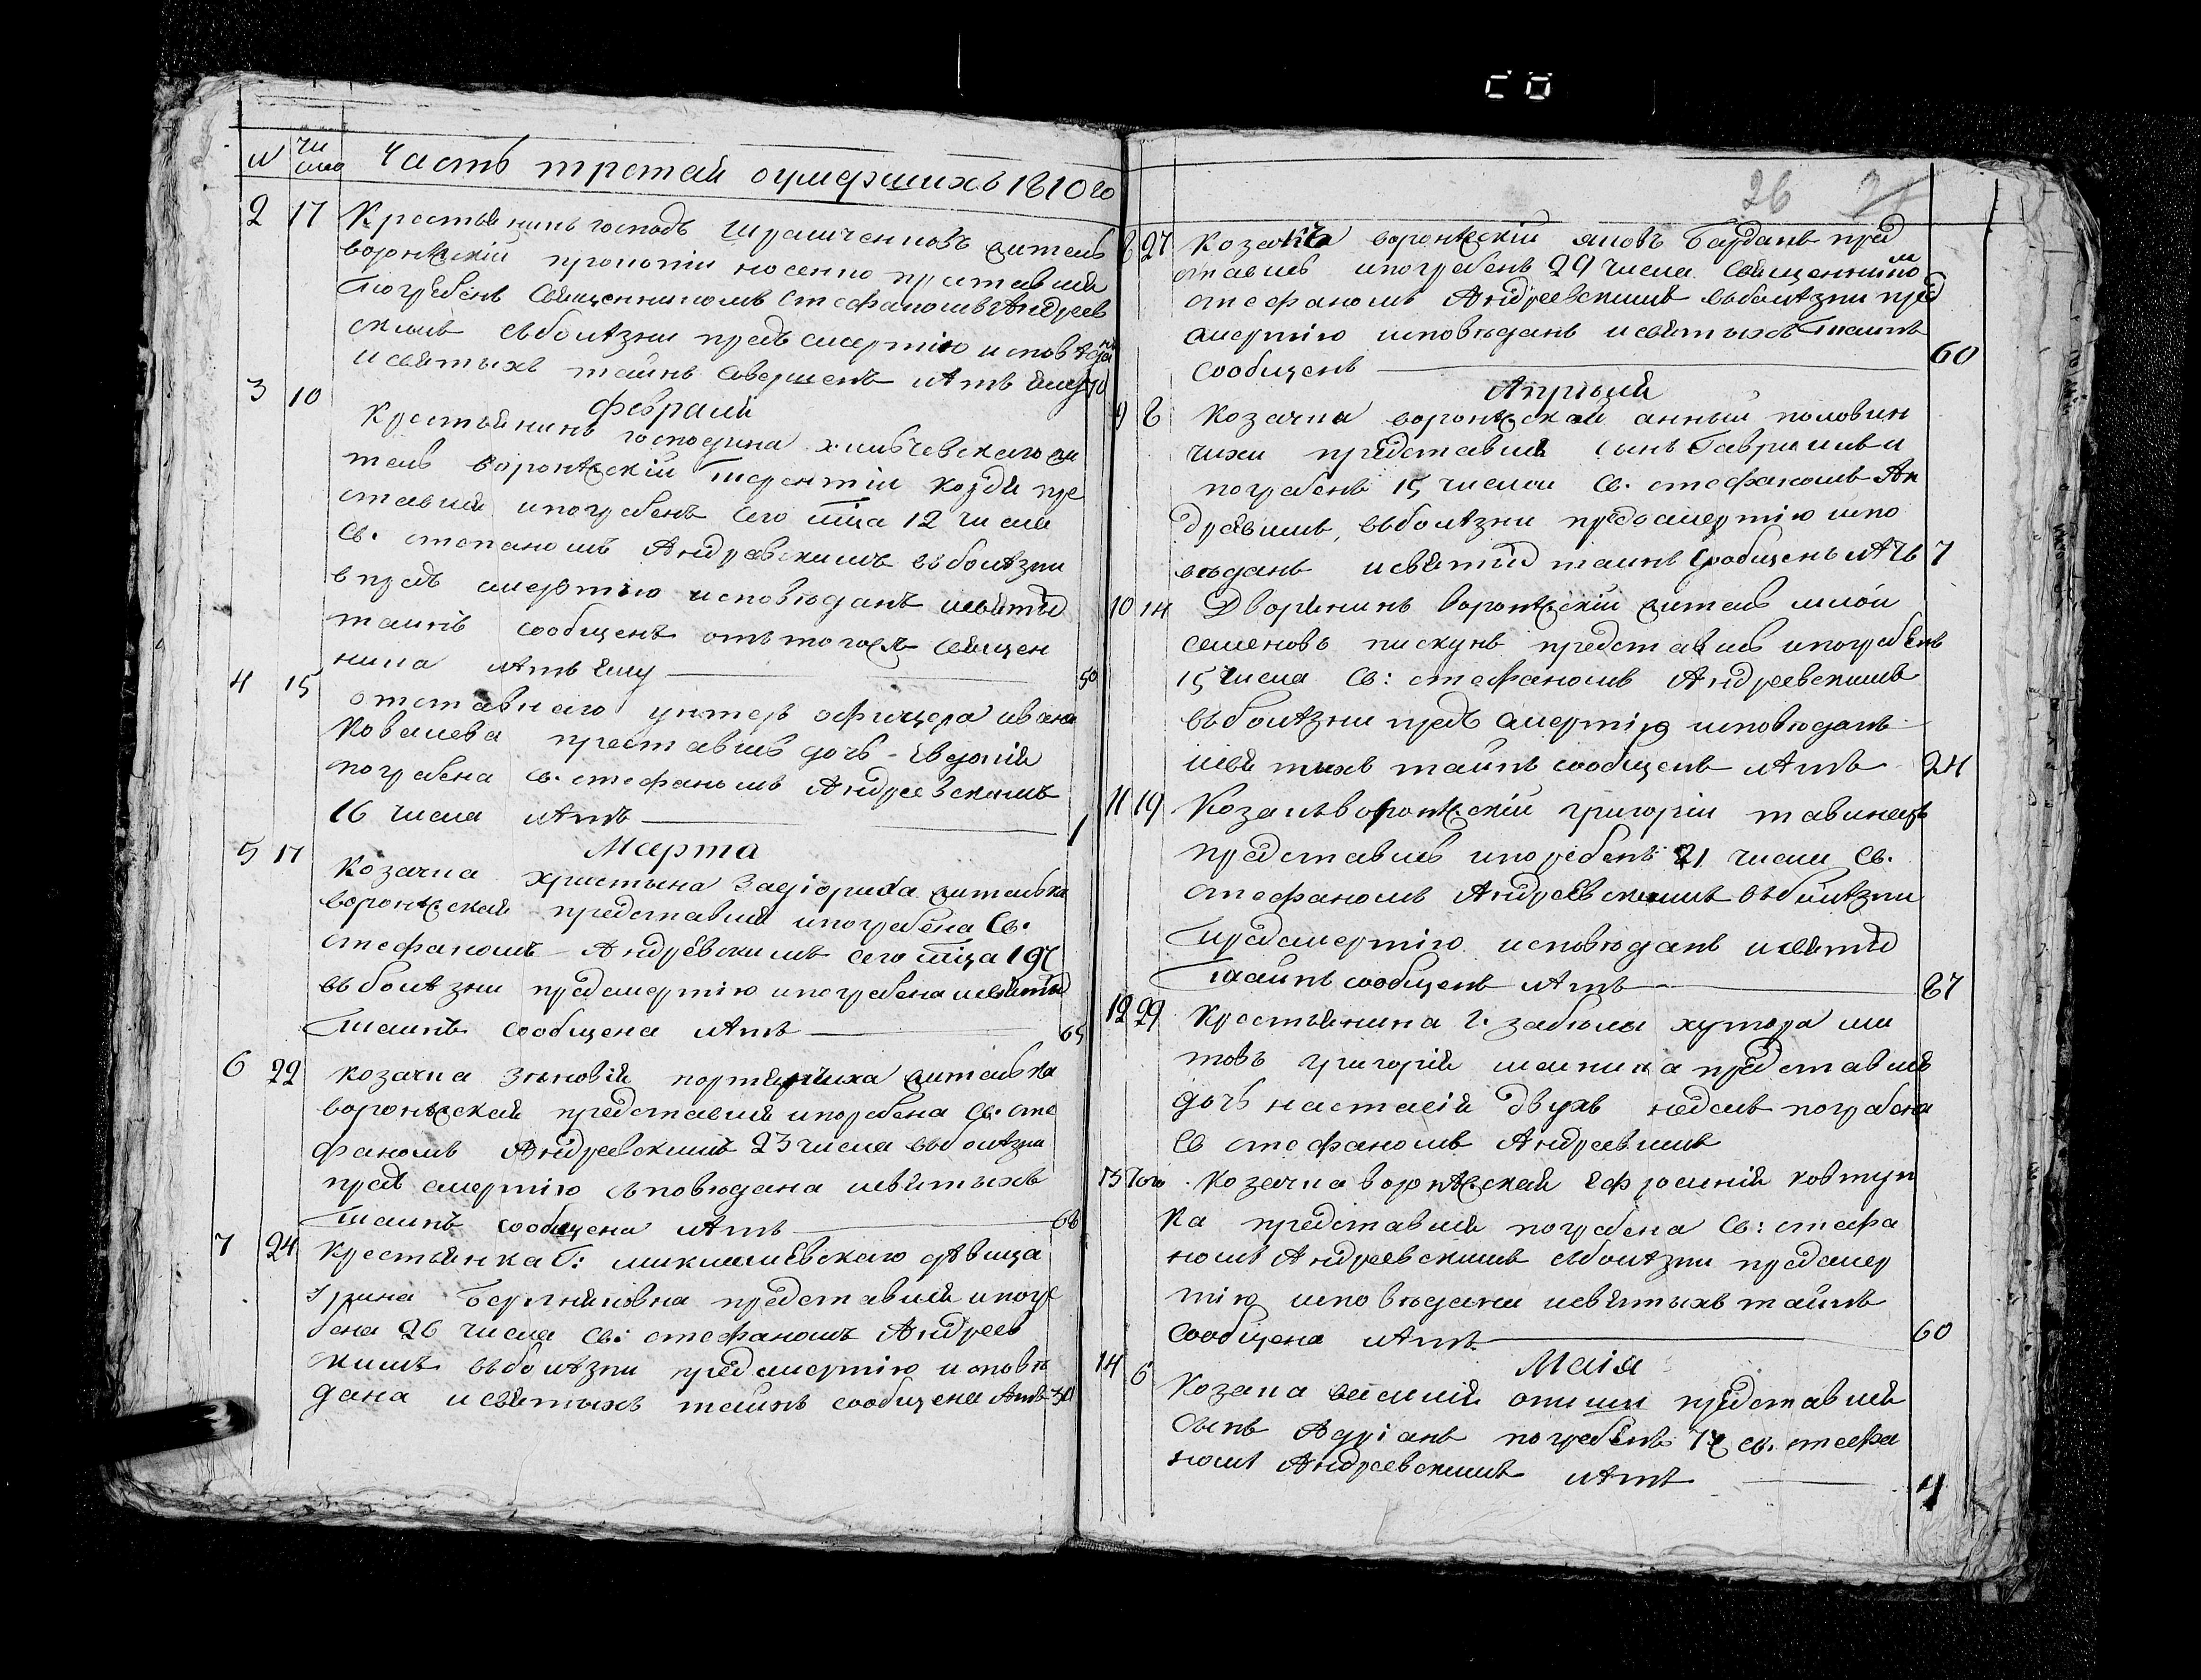 N Чи сло Часть третая оумершихъ 1810го
2 17 Крестьянинъ господъ житель
воронѣжскій прокопій носенко преставися
погребенъ священникомъ Стефаномъ Андреев
скимъ въ болѣзни предъ смертію исповѣданъ
и святыхъ таинъ лѣтъ ему 70
Февраля
3 10 Крестьянинъ господина жи
тель воронѣжскій терентій пре
ставися и погребенъ сего мца 12 числа
Св. степаномъ Андреевскимъ въ болѣзни
предъ смертію исповѣданъ и святых
таинъ сообщенъ отъ того жъ священ
ника лѣтъ ему 50
4 15 отставнаго унтеръ офицера ивана
Ковалева преставись дочь Евдокія
погребена св. стефаномъ Андреевскимъ
16 числа лѣтъ 1
Марта
5 17 Козачка христина жителька
воронѣжская представися и погребена Св.
стефаномъ Андреевскимъ сего мца 19 ч
въ болѣзни пред смертію и погребена и святых
таинъ сообщена лѣтъ 65
6 22 Козачка зѣновія жителька
воронѣжская представися и погребена Св. сте
фаномъ Андреевскимъ 23 числа въ болѣзни
предъ смертію исповѣдана и святыхъ
таинъ сообщена лѣтъ 68
7 24 Крестьянка Г: дѣвица
представися и погре
бена 26 числа Св: стефаномъ Андреев
скимъ въ болѣзни пред смертію исповѣ
дана и святыхъ таинъ сообщена лѣтъ 30
26
8 27 Козакъ воронѣжскій яковъ пред
ставись и погребенъ 29 числа священником
стефаномъ Андреевскимъ въ болѣзни пред
смертію исповѣданъ и святыхъ таинъ
сообщенъ 60
Апрѣля
9 8 Козачки воронѣжской анны половин
чихи представись сынъ Гавриилъ и
погребенъ 15 числа Св. стефаномъ Ан
дреевимъ, въ болѣзни предъ смертію испо
вѣданъ и святых таинъ сообщенъ лѣтъ 7
10 14 Дворянинъ воронѣжскій житель
семеновъ пискунъ представись и погребенъ
15 числа Св: стефаномъ Андреевскимъ
въ болѣзни предъ смертію исповѣданъ
и святихъ таинъ сообщенъ лѣтъ 24
11 19 Козакъ воронѣжскій григорій тавинецъ
представись и погребенъ 21 числа Св.
стефаномъ Андреевскимъ въ болѣзни
пред смертію исповѣданъ и святых
таинъ сообщенъ лѣтъ 87
12 29 Крестьянина г. забѣлы хутора
григорія представись
дочь настасія двухъ недель погребена
Св стефаномъ Андреевимъ
13 того Козачка воронѣжская Ефросинія ковтун
ка представися погребена Св: стефа
номъ Андреевскимъ въ болѣзни пред смер
тію исповѣдана и святыхъ таинъ
сообщена лѣтъ 60
Маія
14 6 Козака василія представися
сынъ Адріанъ погребенъ 7 ч св. стефа
номъ Андреевскимъ лѣтъ 4